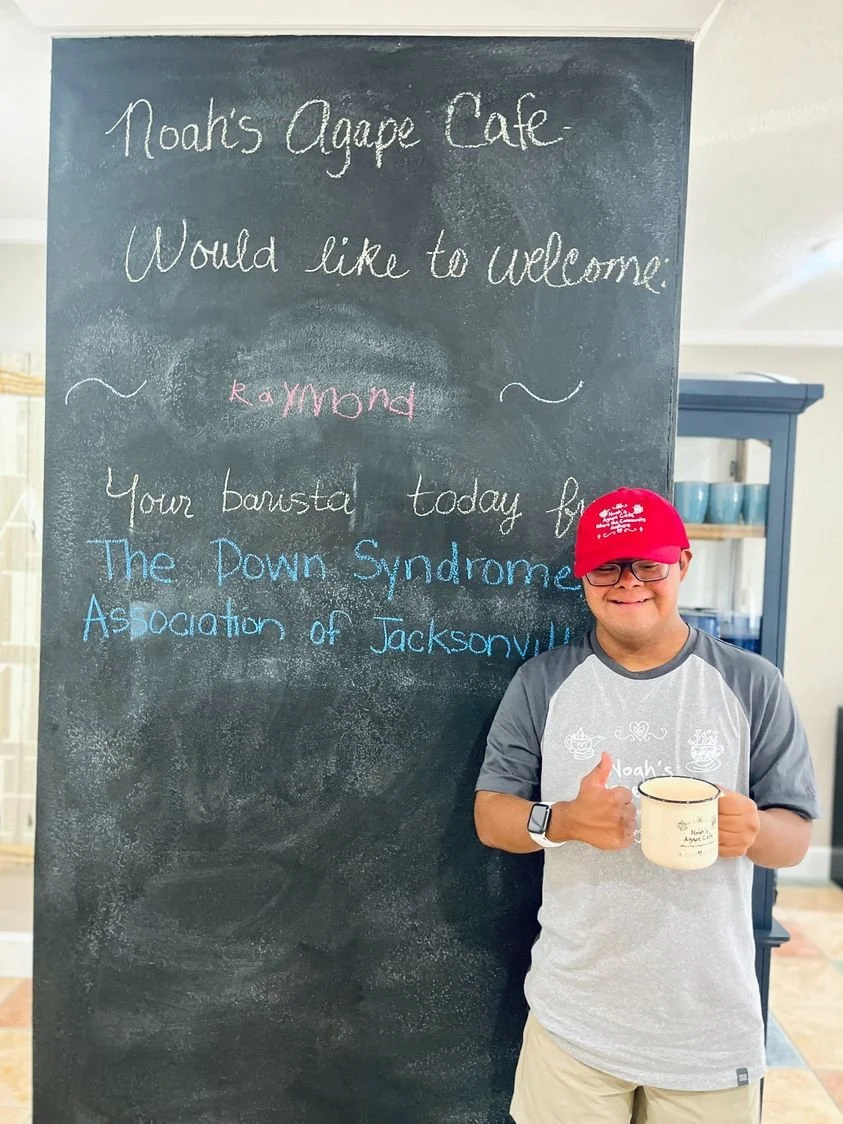 Noah's Agape Cafe-
Would like to welcome:
~ Raymond ~
Your barista today fr
The Down Syndrome
Association of Jacksonvill
Noah's
Agape Cafe
Where the Community
Gathers
Noah's
Noah's
Agape Cafe